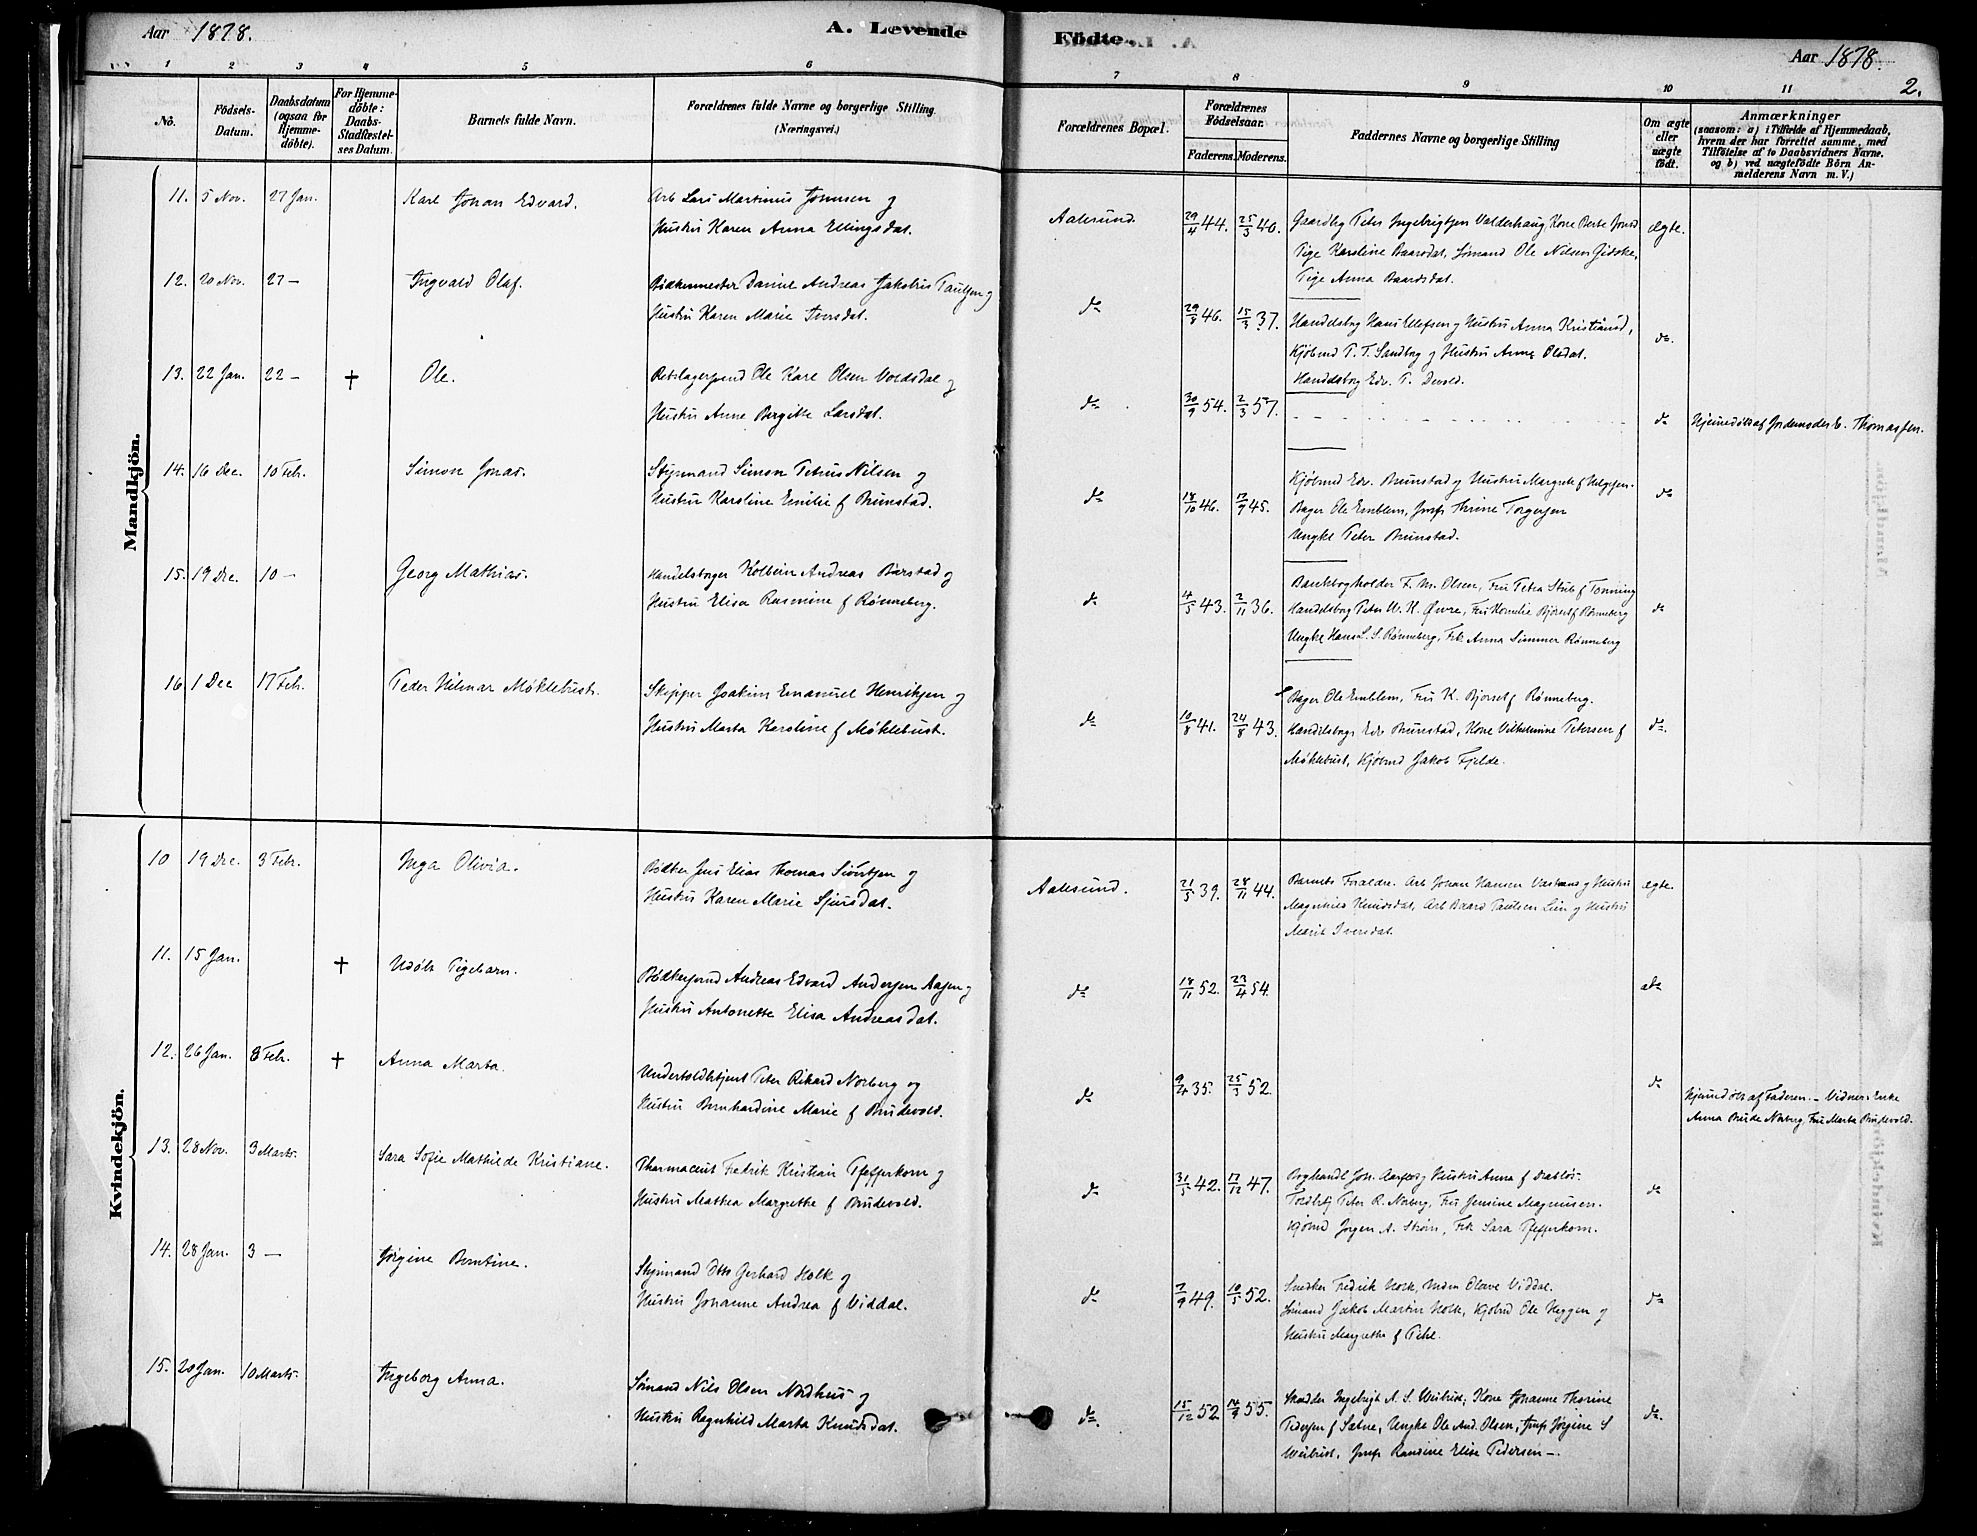 Aar 1878.
A. Levende
Födte.
Aar 1878.
2.
1 2 3 4 5 6 7 8 9 10 11
No.
Födsels-Datum.
Daabsdatum (ogsaa for Hjemmedöbte).
For Hjemmedöbte: Daabs-Stadfæstelses Datum.
Barnets fulde Navn.
Forældrenes fulde Navne og borgerlige Stilling
(Næringsvei.)
Forældrenes Bopæl.
Forældrenes Födselsaar.
Faderens. Moderens.
Faddernes Navne og borgerlige Stilling
Om ægte eller uægte født.
Anmærkninger
(saasom: a) i Tilfælde af Hjemmedaab,
hvem der har forrettet samme, med
Tilföielse af to Daabsvidners Navne,
og b) ved uægtefödte Börn Anmelderens Navn m. V.)
Mandkjön.
11. 5 Nov. 27 Jan. Karl Johan Edvard. Arb Lars Martinus og
Hustru Karen Anna Ellingsdat.
Aalesund. 29/4 44. 25/3 46. Peter Ingebrigtsen Valderhaug, Kone Berte
Pige Karoline Baarsdat, Sömand Ole Nilsen Gidske,
Pige Anna Baardsdat.
ægte.
12. 20 Nov. 27 — Ingvald Olaf. Bödkermester Daniel Andreas Jakobus Paulsen og
Hustru Karen Marie Iversdat.
do 29/8 46. 15/3 37. Handelsborg Hans Ellefsen og Hustru Anna Kristiansd,
Kjöbmd P. T. Sandborg og Hustru Anne Olsdat.
Handelsborg Edv. T. Devold.
do.
13. 22 Jan. 22 — † Ole. Ole Karl Olsen Voldsdal og
Hustru Anne Bergitte Larsdat.
do 30/9 54. 2/3 57. do Hjemmedöbt af Jordemoder E. Thomassen.
14. 16 Dec. 10 Feb. Simon Jonas. Styrmand Simon Petrus Nilsen og
Hustru Karoline Emilie f Brunstad.
do 18/10 46. 17/9 45. Kjöbmd Edv. Brunstad og Hustru Margrete f
Bager Ole Emblem, Jmfr Thrine Torgersen
Ungkl Peter Brunstad.
do
15. 19 Dec. 10 — Georg Mathias. Handelsborger Kolbein Andreas Bjørstad og
Hustru Elisa Rasmine f Rönneberg.
do 4/5 43. 2/11 36. Bankbogholder F. M. Olsen, Fru Petra Stub f Tonning
Handelsborg Peter W. K. Øwre, Fru Kornelia Bjorset f Rönneberg
Ungkl Hans L. S. Rönneberg, Frk Anna Simmer Rönneberg
do
16. 1 Dec 17 Feb. Peder Hilmar Möklebust. Skipper Joakim Emanuel Henriksen og
Hustru Marta Karoline f Möklebust.
do 10/8 41. 24/8 43. Bager Ole Emblem, Fru K. Bjorset f Rönneberg.
Handelsborg Edv Brunstad, Kone Vilhelmine Petersen f
Möklebust, Kjöbmd Jakob Fjelde.
do.
Kvindekjön.
10 19 Dec. 3 Feb. Inga Olivia. Bödker Jens Elias Thomas Sivertsen og
Hustru Karen Marie Sjursdat.
Aalesund. 21/5 39. 28/11 44. Barnets Foraldre. Arb Johan Hansen og Hustru
Magnhild Knudsdat, Arb Baard Paulsen Lien og Hustru
Marit Iversdat.
ægte.
11. 15 Jan. † Udöbt Pigebarn. Bödkersvend Andreas Edvard Andersen Aasen og
Hustru Antonette Elisa Andreasdat.
do 18/11 52. 23/4 54. do
12. 26 Jan. 8 Feb. † Anna Marta. Undertoldbetjent Peter Rikard Norberg og
Hustru Bernhardine Marie f Brudevold.
do 9/4 35. 25/3 52. do Hjemmedöbt af Faderen. - Vidner: Enke
Anna Norberg, Fru Marta Brudevold.
13. 28 Nov. 3 Marts. Sara Sofie Mathilde Kristiane. Pharmaceut Fredrik Kristian Pfefferkorn og
Hustru Mathea Margrethe f Brudevold.
do 31/5 42. 17/12 47. Boghandl Joh. Aarflot og Hustru Anna f
Toldbtj Peter R. Norberg, Fru Jensine Magnusen.
Kjöbmd Jörgen A. Ström, Frk Sara Pfefferkorn.
do
14. 28 Jan. 3 — Jörgine Berntine. Styrmand Otto Gerhard Holk og
Hustru Johanne Andrea f Viddal.
do 7/9 49. 10/5 52. Snedker Fredrik Holk, Olave Viddal.
Sömand Jakob Martin Holk, Kjöbmd Ole Heggen og
Hustru Margrethe f Pihl.
do
15. 20 Jan. 10 Marts. Ingeborg Anna. Sömand Nils Olsen Nordhus og
Hustru Ragnhild Marta Knudsdat.
do. 15/12 52 14/9 55. Skrædder Ingebrigt A. S. Weibust, Kone Johanne Thorine
Pedersen f Sætre, Ungkl Ole And. Olsen, Jmfr Jörgine S
Weibust, Jmfr Randine Elise Pedersen —.
do.